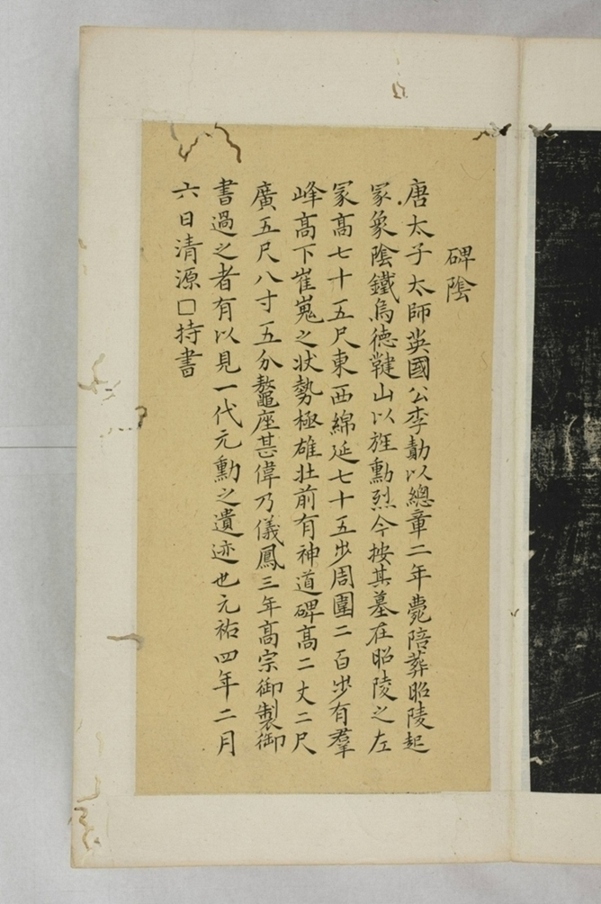 碑陰
唐太子太師英國公李勣以總章二年薨陪葬昭陵起
冢象陰鐵烏德鞬山以旌勳烈今按其墓在昭陵之左
冢高七十五尺東西綿延七十五步周圍二百步有羣
峰高下崔嵬之狀勢極雄壯前有神道碑高二丈二尺
廣五尺八寸五分鼇座甚偉乃儀鳳三年高宗御製御
書過之者有以見一代元勳之遺迹也元祐四年二月
六日清源□持書